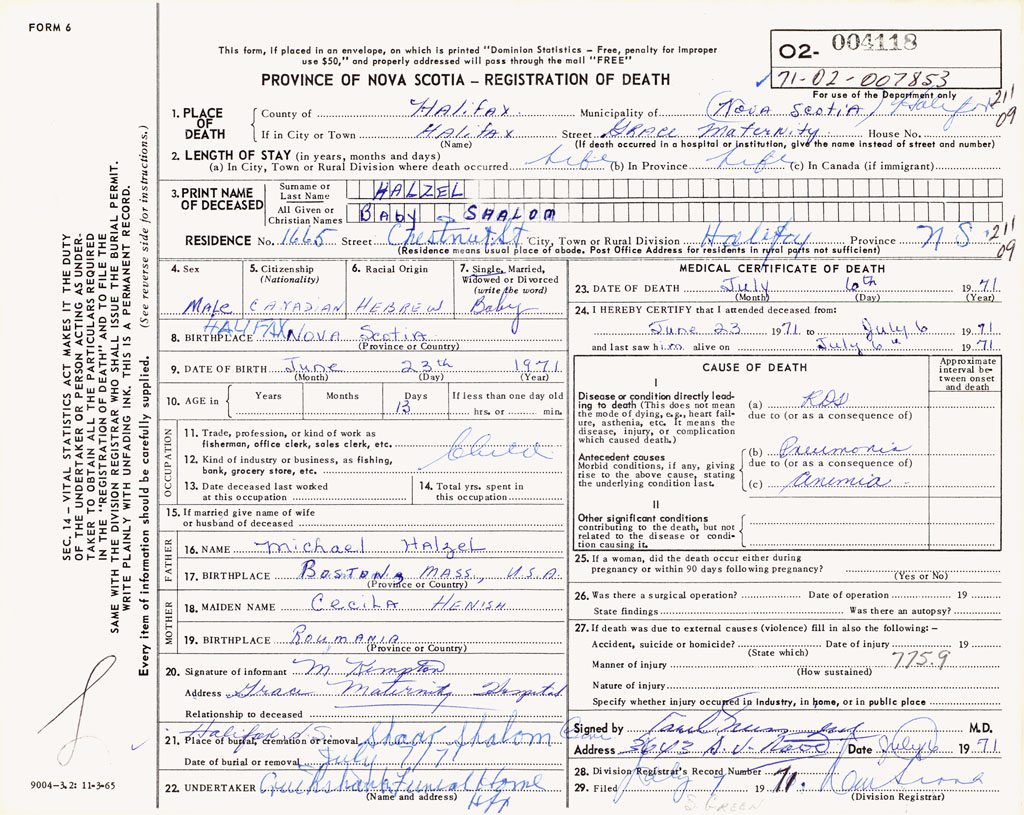 FORM 6
This form, if placed in an envelope, on which is printed "Dominion Statistics – Free, penalty for improper
use $50," and properly addressed will pass through the mail "FREE"
PROVINCE OF NOVA SCOTIA – REGISTRATION OF DEATH
O2- 004118
71-02-007853
For use of the Department only
211
09
1. PLACE OF DEATH
County of HALIFAX Municipality of NOVA SCOTIA Halifax
If in City or Town HALIFAX Street GRACE MATERNITY House No.
(Name) (If death occurred in a hospital or institution, give the name instead of street and number)
2. LENGTH OF STAY (in years, months and days)
(a) In City, Town or Rural Division where death occurred life (b) In Province life (c) In Canada (if immigrant)
3. PRINT NAME OF DECEASED
Surname or Last Name HALZEL
All Given or Christian Names BABY SHALOM
RESIDENCE No. 1665 Street Chestnut St City, Town or Rural Division Halifax Province N S 211
09
(Residence means usual place of abode. Post Office Address for residents in rural parts not sufficient)
4. Sex
Male
5. Citizenship (Nationality)
CANADIAN
6. Racial Origin
HEBREW
7. Single, Married, Widowed or Divorced (write the word)
Baby
8. BIRTHPLACE HALIFAX NOVA SCOTIA
(Province or Country)
9. DATE OF BIRTH June 23th 1971
(Month) (Day) (Year)
10. AGE in Years Months Days If less than one day old
13 hrs. or min.
OCCUPATION
11. Trade, profession, or kind of work as
fisherman, office clerk, sales clerk, etc.
Child
12. Kind of industry or business, as fishing,
bank, grocery store, etc.
13. Date deceased last worked
at this occupation
14. Total yrs. spent in
this occupation
15. If married give name of wife
or husband of deceased
FATHER
16. NAME Michael Halzel
17. BIRTHPLACE BOSTON, MASS, U.S.A
(Province or Country)
MOTHER
18. MAIDEN NAME Cecila HENISH
19. BIRTHPLACE ROUMANIA
(Province or Country)
20. Signature of informant M. Kempton
Address Grace Maternity Hospital
Relationship to deceased
Halifax N.S.
21. Place of burial, cremation or removal Shaar Shalom Cem
Date of burial or removal July 7/71
22. UNDERTAKER Cruikshank Funeral Home
(Name and address) Hfx
MEDICAL CERTIFICATE OF DEATH
23. DATE OF DEATH July 6th 1971
(Month) (Day) (Year)
24. I HEREBY CERTIFY that I attended deceased from:
June 23 1971 to July 6 1971
and last saw him alive on July 6th 1971
CAUSE OF DEATH
Approximate interval between onset and death
I
Disease or condition directly leading to death (This does not mean
the mode of dying, e.g., heart failure, asthenia, etc. It means the
disease, injury, or complication
which caused death.)
(a) RDS
due to (or as a consequence of)
Antecedent causes
Morbid conditions, if any, giving
rise to the above cause, stating
the underlying condition last.
(b) Pneumonia
due to (or as a consequence of)
(c) Anemia
II
Other significant conditions
contributing to the death, but not
related to the disease or condition causing it.
25. If a woman, did the death occur either during
pregnancy or within 90 days following pregnancy?
(Yes or No)
26. Was there a surgical operation? Date of operation 19
State findings Was there an autopsy?
27. If death was due to external causes (violence) fill in also the following: –
Accident, suicide or homicide? Date of injury 19
(State which)
775.9
Manner of injury
(How sustained)
Nature of injury
Specify whether injury occurred in industry, in home, or in public place
Signed by M.D.
Address Date July 6 1971
28. Division Registrar's Record Number
29. Filed July 7 1971
(Division Registrar)
S. GREEN
SEC. 14 – VITAL STATISTICS ACT MAKES IT THE DUTY
OF THE UNDERTAKER OR PERSON ACTING AS UNDERTAKER TO OBTAIN ALL THE PARTICULARS REQUIRED
IN THE "REGISTRATION OF DEATH" AND TO FILE THE
SAME WITH THE DIVISION REGISTRAR WHO SHALL ISSUE THE BURIAL PERMIT.
WRITE PLAINLY WITH UNFADING INK. THIS IS A PERMANENT RECORD.
Every item of information should be carefully supplied. (See reverse side for instructions.)
9004-3.2: 11-3-65